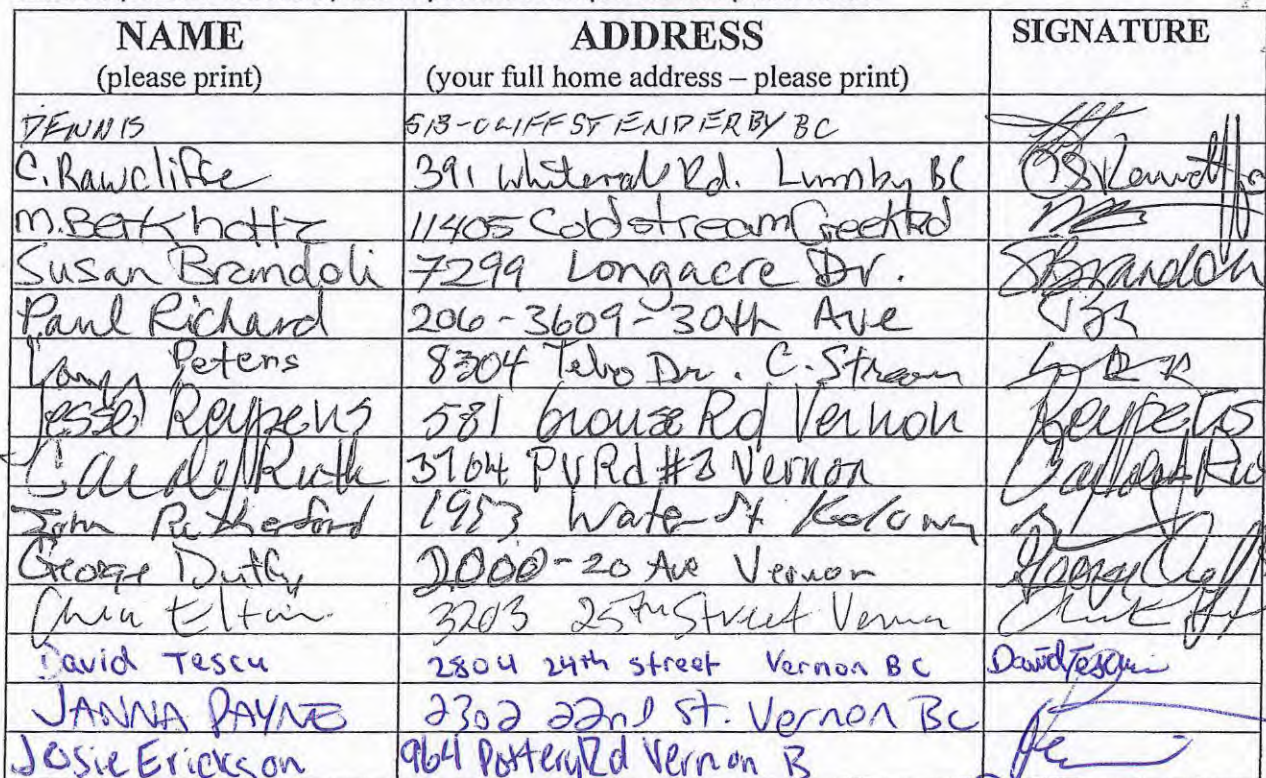 NAME ADDRESS SIGNATURE
(please print) (your full home address – please print)
DENNIS 513-CLIFF ST ENDERBY BC
C. Rawcliffe 391 Whitevale Rd. Lumby BC
M. Berkholtz 11405 Coldstream Creek Rd
Susan Brandoli 7299 Longacre Dr. SBrandoli
Paul Richard 206-3609-30th Ave
Peters 8304 Tebo Dr. C. Stream
Jesse Reypens 581 Grouse Rd Vernon Reypens
Ruth 3704 PV Rd #3 Vernon
John Rutherford 1953 Water St
George Duffy 2000-20 Ave Vernon
Eltain 3203 25th Street Vernon
David Tescu 2804 24th street Vernon BC David
JANNA PAYNE 2302 22nd St. Vernon BC
Josie Erickson 964 Pottery Rd Vernon B